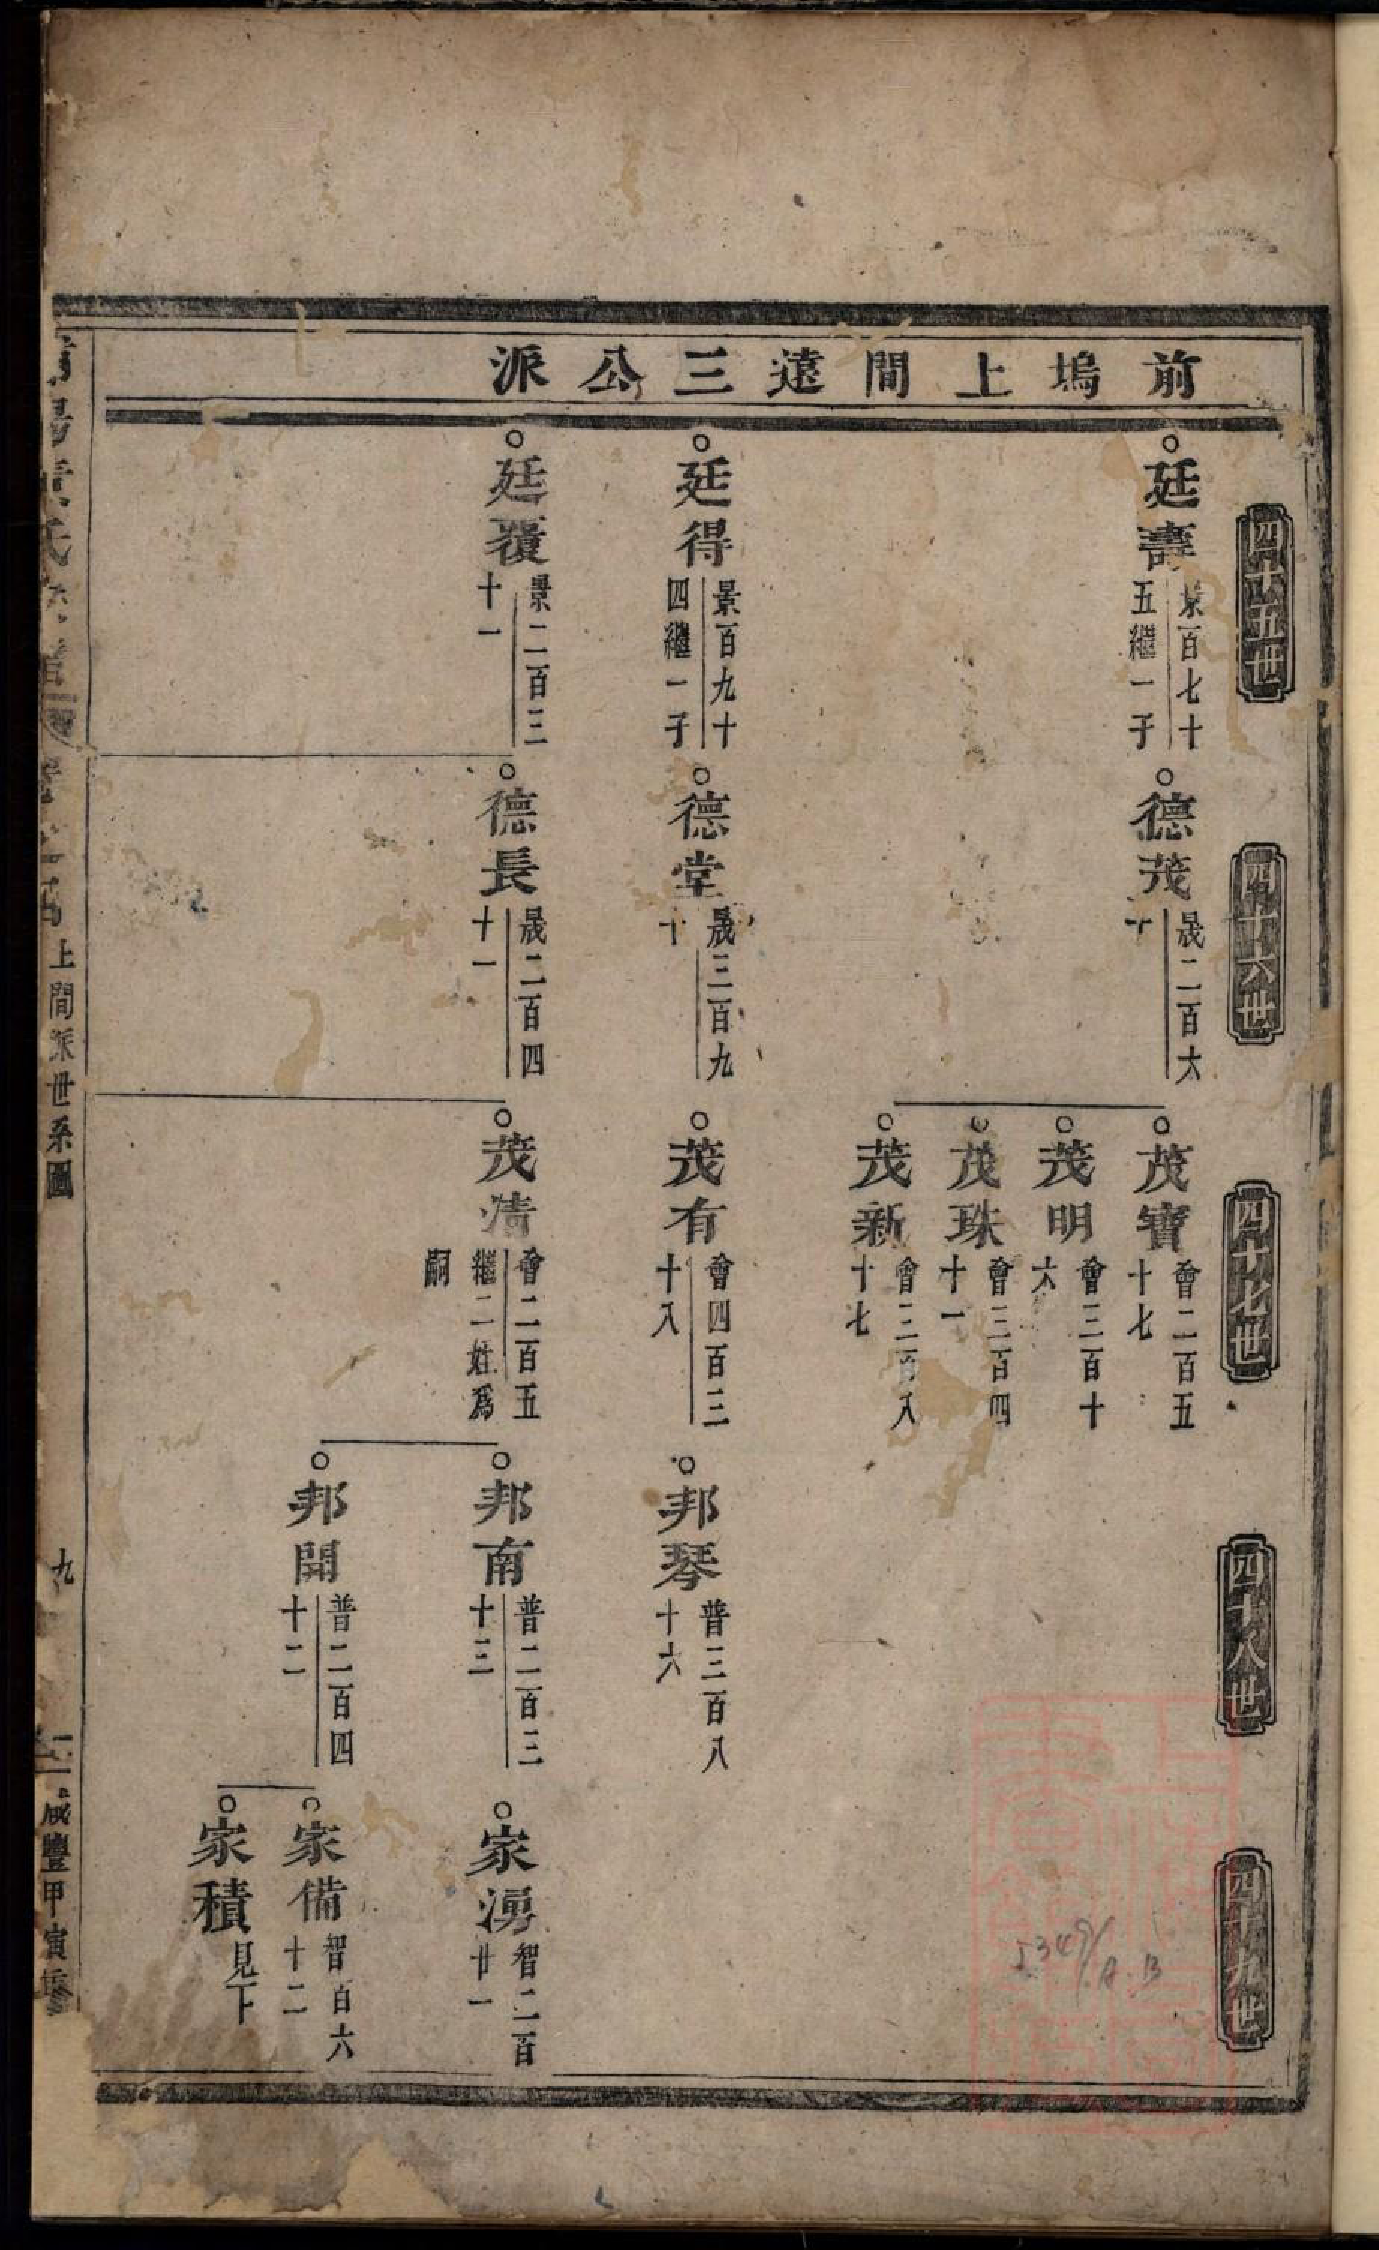 前塢上間遠三公派
四十五世
四十六世
四十七世
四十八世
四十九世
廷壽
景百七十
五繼一子
德茂
晟二百六
十
茂寶
會二百五
十七
茂明
會三百十
六
茂珠
會三百四
十一
茂新
會三百八
十七
廷得
景百九十
四繼一子
德堂
晟三百九
十
茂有
會四百三
十八
邦琴
普三百八
十六
廷覆
景二百三
十一
德長
晟二百四
十一
茂清
會二百五
繼二姪爲
嗣
邦南
普二百三
十三
家湧
智二百
廿一
邦開
普二百四
十二
家備
智百六
十二
家積
見下
陽黃氏
上間派世系圖
九
咸豐甲寅
5349/
A.B